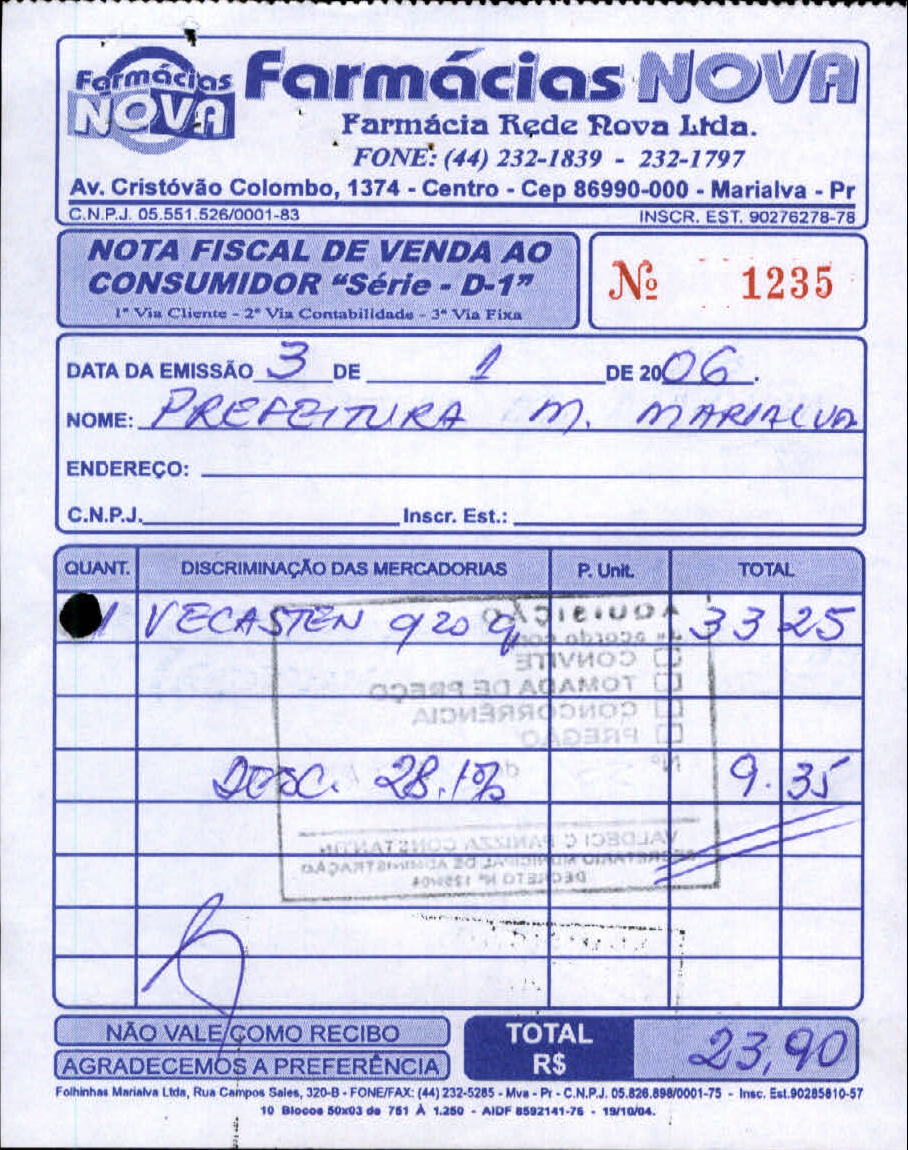 Farmácias NOVA
Farmácias NOVA
Farmácia Rede Nova Ltda.
FONE: (44) 232-1839 - 232-1797
Av. Cristóvão Colombo, 1374 - Centro - Cep 86990-000 - Marialva - Pr
C.N.P.J. 05.551.526/0001-83 INSCR. EST. 90276278-78
NOTA FISCAL DE VENDA AO
CONSUMIDOR "Série - D-1"
1ª Via Cliente - 2ª Via Contabilidade - 3ª Via Fixa
Nº 1235
DATA DA EMISSÃO 3 DE 1 DE 2006.
NOME: PREFEITURA M. MARIALVA
ENDEREÇO:
C.N.P.J. Inscr. Est.:
QUANT. DISCRIMINAÇÃO DAS MERCADORIAS P. Unit. TOTAL
1 VECASTEN 920 g 33 25
AQUISIÇÃO
de acordo com
CONVITE
TOMADA DE PREÇO
CONCORRÊNCIA
PREGÃO
Nº
DESC. 28.1% 9.35
VALDECI C PANIZZA CONSTANTIN
SECRETARIO MUNICIPAL DE ADMINISTRAÇÃO
DECRETO Nº
NÃO VALE COMO RECIBO
AGRADECEMOS A PREFERÊNCIA
TOTAL
R$ 23,90
Folhinhas Marialva Ltda, Rua Campos Sales, 320-B - FONE/FAX: (44) 232-5285 - Mva - Pr - C.N.P.J. 05.826.898/0001-75 - Insc. Est.90285810-57
10 Blocos 50x03 de 751 À 1.250 - AIDF 8592141-76 - 19/10/04.